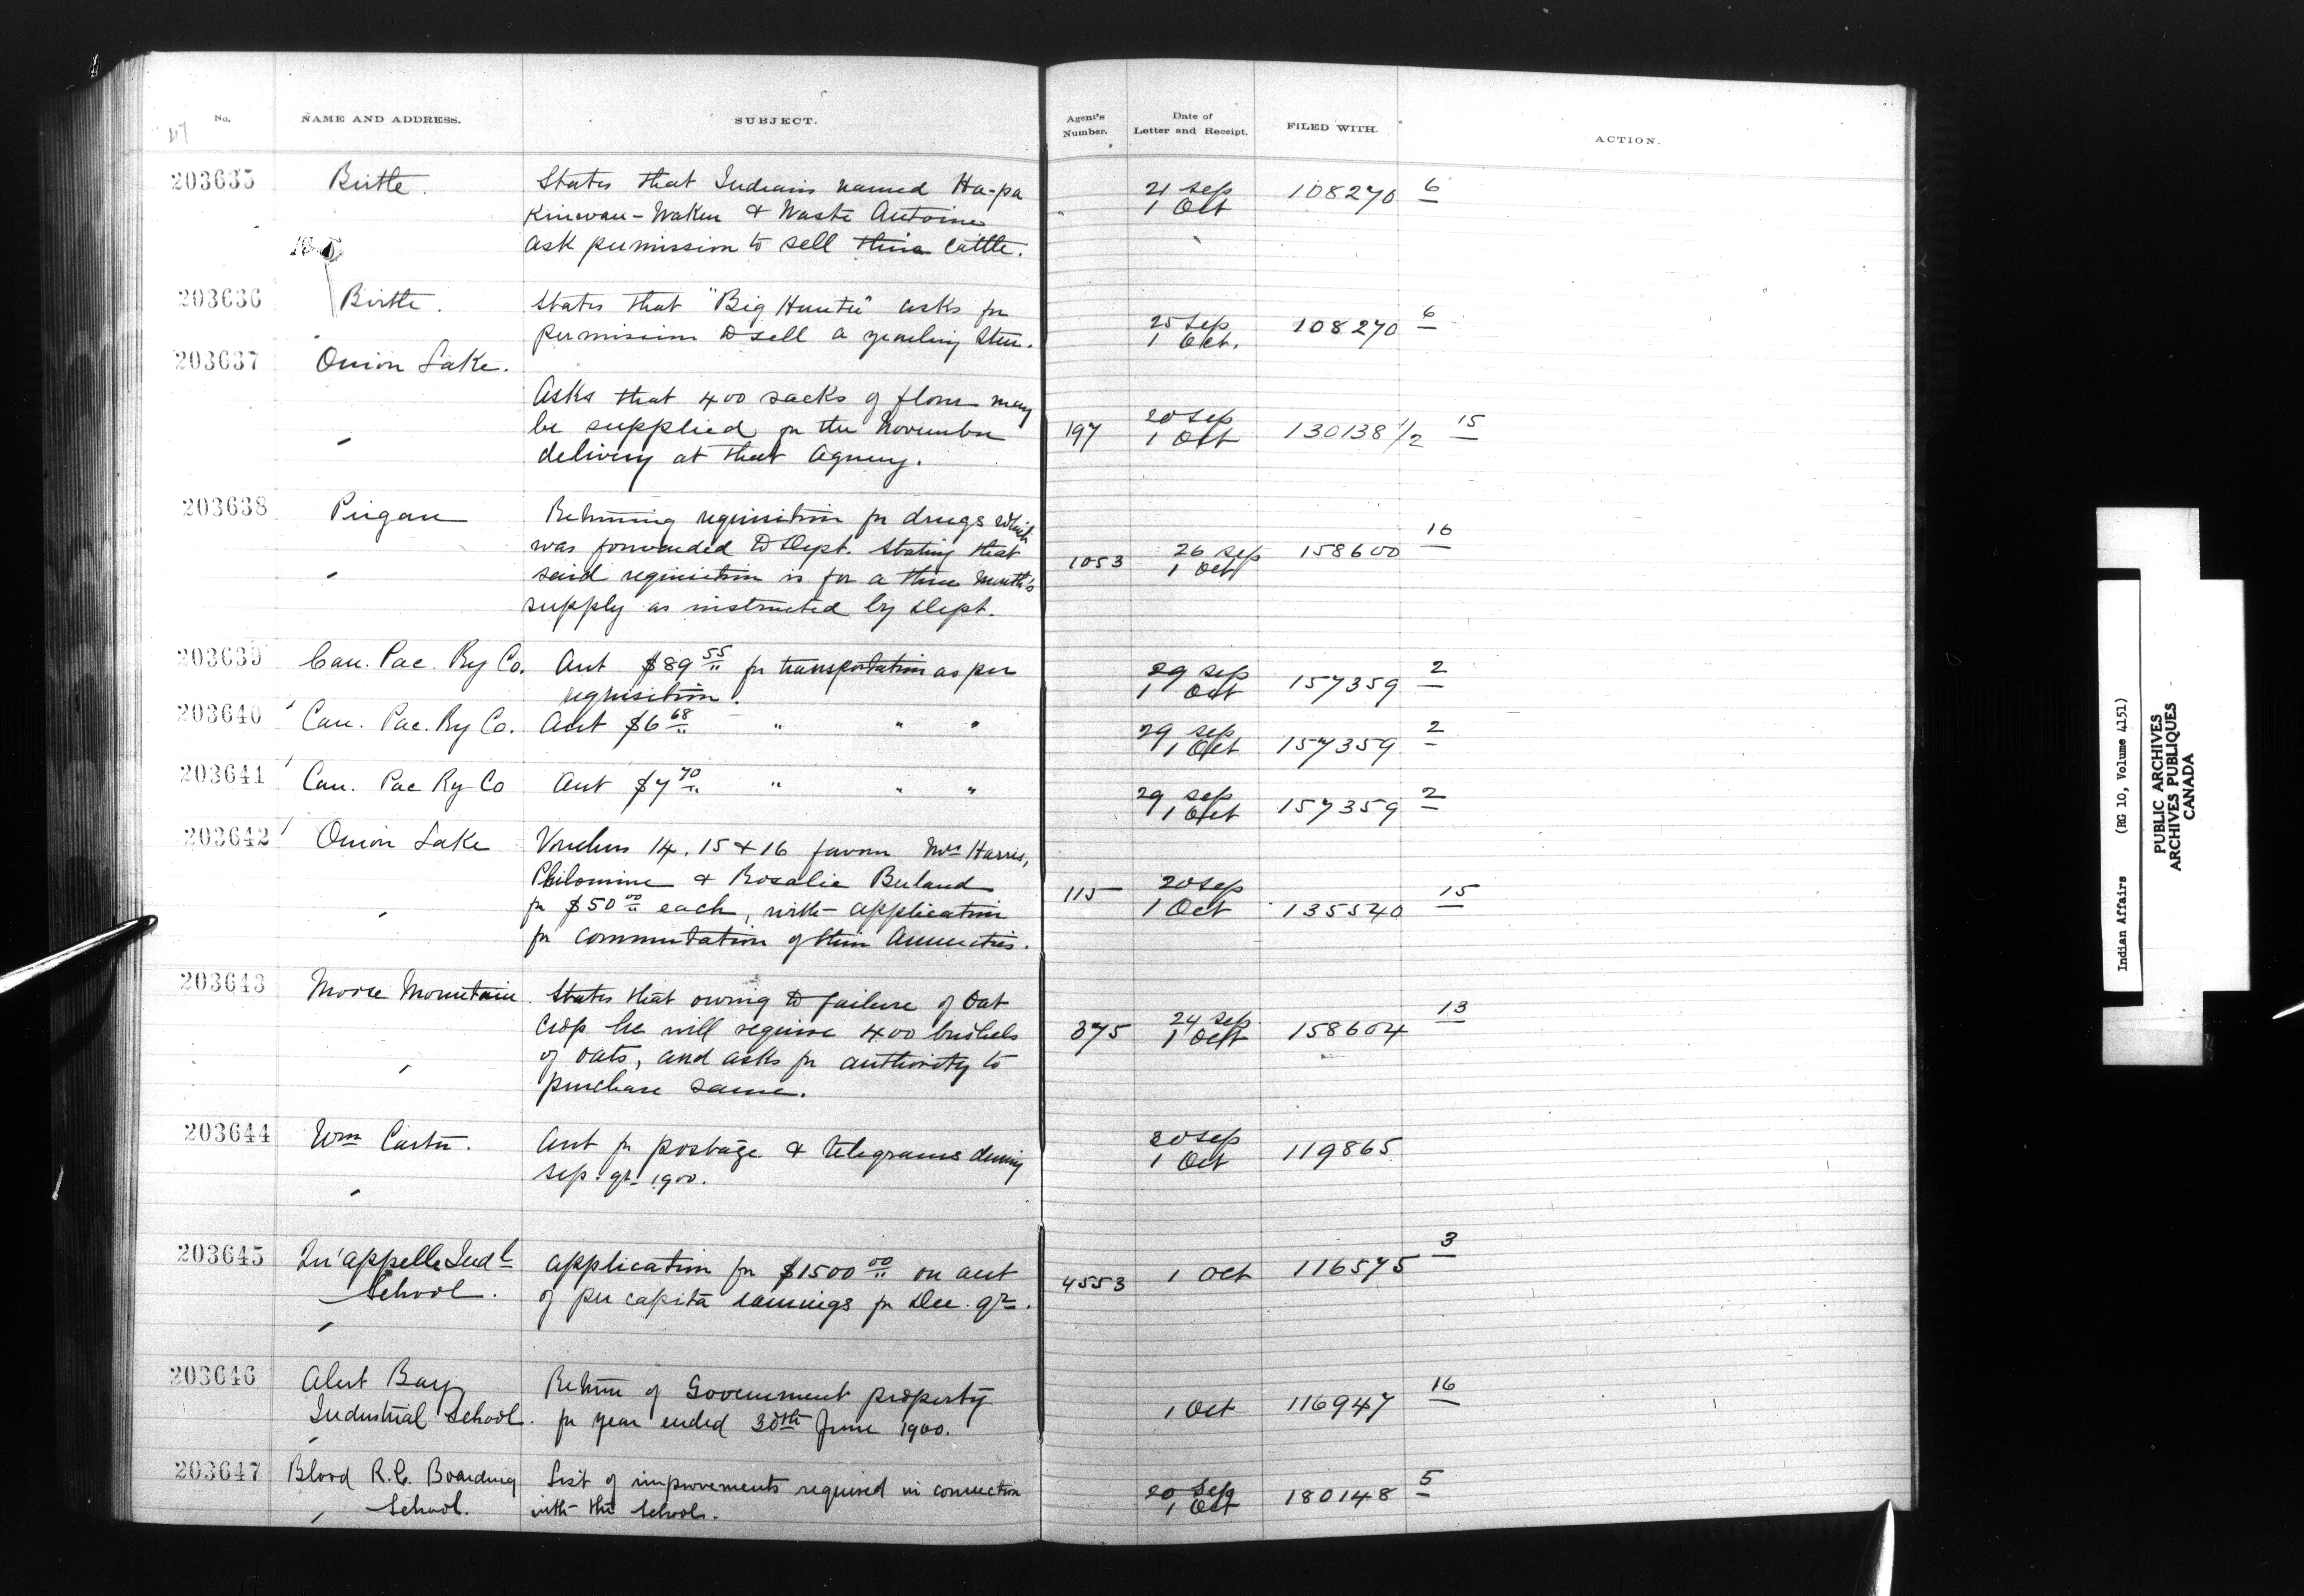 No. NAME AND ADDRESS. SUBJECT. Agent's Number. Date of Letter and Receipt. FILED WITH. ACTION.
203635 Birtle. States that Indians named Ha-pa 21 Sep 108270 6
Kinwan-Waken & Waste Antoine 1 Oct
ask permission to sell their Cattle.
203636 Birtle. States that "Big Hunter" asks for 25 Sep 108270 6
permission to sell a yearling Steer. 1 Oct.
203637 Onion Lake.
Asks that 400 sacks of flour may 20 Sep
be supplied for the November 197 1 Oct 130138 1/2 15
delivery at that Agency.
203638 Piegan Returning requisition for drugs which
was forwarded to Dept. stating that 1053 26 Sep 158600 16
said requisition is for a three month's 1 Oct
supply as instructed by Dept.
203639 Can. Pac. Ry Co. Acct $89 55 for transportation as per 29 Sep 157359 2
requisition. 1 Oct
203640 Can. Pac. Ry Co. Acct $6 68 " " " 29 Sep 157359 2
1 Oct
203641 Can. Pac Ry Co Acct $7 70 " " " 29 Sep 157359 2
1 Oct
203642 Onion Lake Vouchers 14, 15 & 16 favour Mrs Harris,
Philomine & Rosalie Berland 115 20 Sep
for $50 00 each, with application 1 Oct 135540 15
for commutation of their Annuities.
203643 Moose Mountain. States that owing to failure of Oat
Crop he will require 400 bushels 375 24 Sep 158604 13
of oats, and asks for authority to 1 Oct
purchase same.
203644 Wm Carter. Acct for postage & telegrams during 20 Sep 119865
Sep. qr. 1900. 1 Oct
203645 Qu'appelle Indl Application for $1500 00 on acct 4553 1 Oct 116575 3
School. of per capita earnings for Dec. qr.
203646 Alert Bay Return of Government property
Industrial School. for year ended 30th June 1900. 1 Oct 116947 16
203647 Blood R.C. Boarding List of improvements required in connection 20 Sep 180148 5
School. with the School. 1 Oct
Indian Affairs (RG 10, Volume 4151)
PUBLIC ARCHIVES
ARCHIVES PUBLIQUES
CANADA